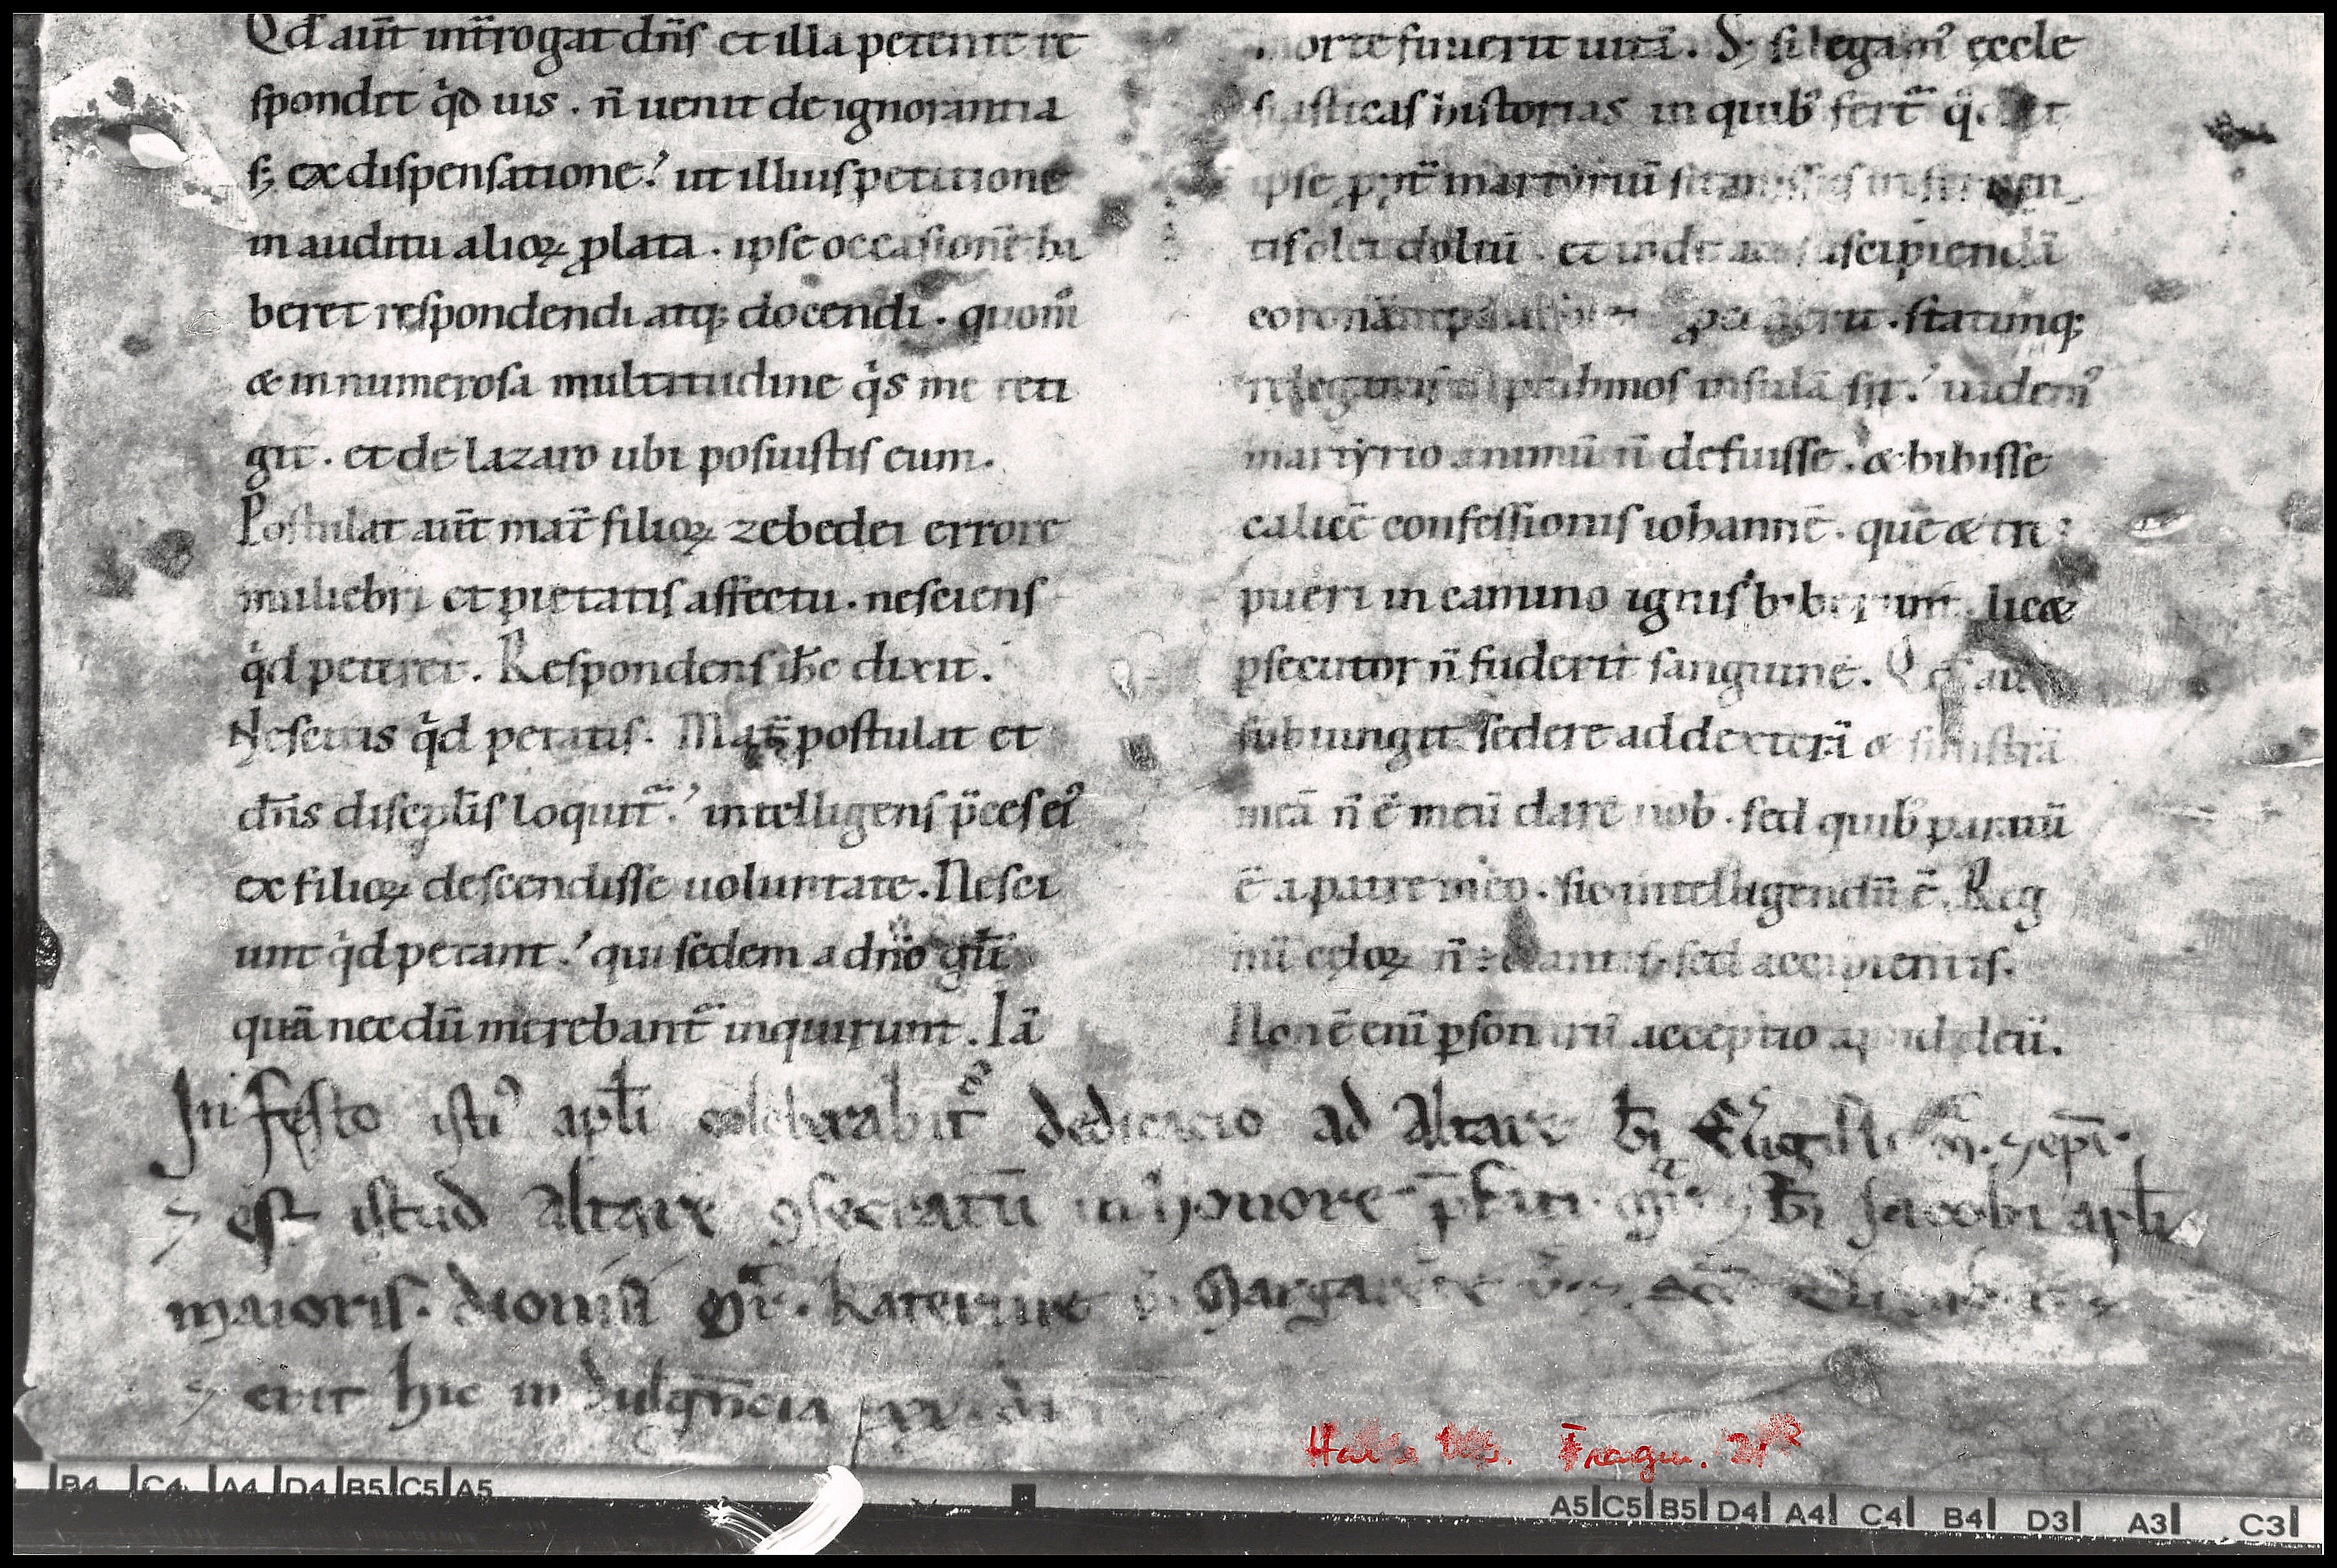 Qđ aut̄ int̄rogat dn̄s et illa petente re
spondet qͥd uis . n̄ uenit de ignorantia
sꝫ ex dispensatione . ut illius petitione
in auditu alioꝝ ꝓlata . ipse occasionē ha
beret respondendi atqꝫ docendi . quom̊
& in numerosa multitudine qͥs me teti
git . et de lazaro ubi posuistis eum .
Postulat aut̄ mat̄ filioꝝ zebedei errore
muliebri et pietatis affectu . nesciens
qͥd peteret . Respondens ih̄c dixit .
Nescitis qͥd petatis . Mat̄ postulat et
dn̄s discipłis loquit᷑ . intelligens p̄ces eiꝰ
ex filioꝝ descendisse uoluntate . Nesci
unt qͥd petant . qui sedem a dn̄o
quā necdū merebant᷑ inquirunt . Iā
morte finierit uitā . Sꝫ si legamꝰ eccle
siasticas historias in quibꝰ fert᷑
ipse ꝓpt̄ martyriū sit missus in feruen
tis olei doliū et inde ad suscipiendā
coronā statimqꝫ
relegatus in pathmos insulā sit . uidemꝰ
martyrio animū n̄ defuisse . & bibisse
calicē confessionis iohannē . quē & tres
pueri in camino ignis biberunt . lic&
ꝑsecutor n̄ fuderit sanguinē . Qđ au
subiungit sedere ad dexterā & sinistrā
meā n̄ ē meū dare uob . sed quibꝰ paratū
ē a patre meo . sic intelligendū ē . Reg
nū cęloꝝ n̄ dantis . sed accipientis .
Non ē enī ꝑsonarū acceptio apud deū .
In festo istiꝰ apłi celebrabit᷑ dedicacio ad altare bt̄i
⁊ est istud altare ꝯsecratū in honore bt̄i Iacobi apłi
maioris . dionisii mr̄ . katerine Margarete
⁊ erit hic indulgn̄cia
Halle Fragm. 21
B4 C4 A4 D4 B5 C5 A5
A5 C5 B5 D4 A4 C4 B4 D3 A3 C3